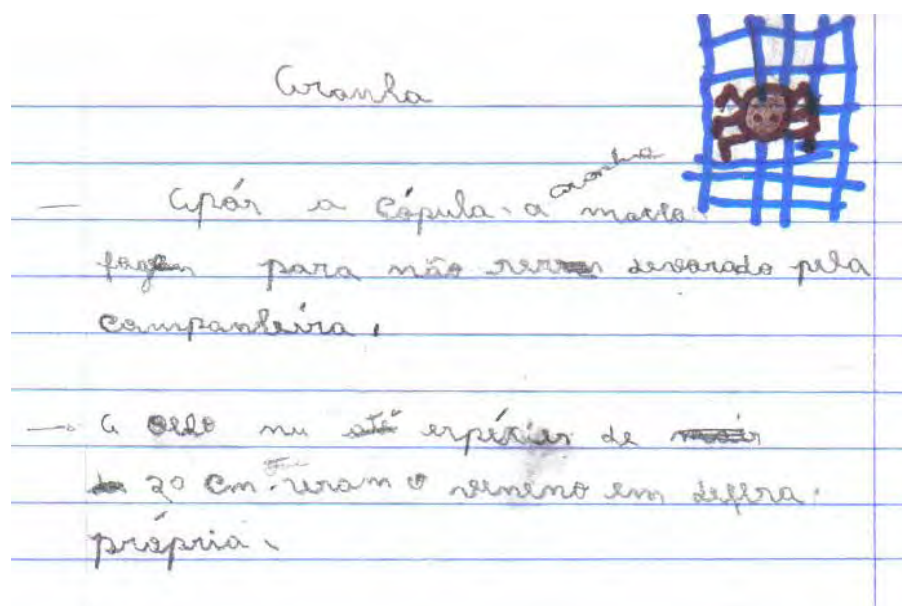 Aranha
aranha
Após a cópula. a macho
para não ser devorado pela
companheira.
A nu até espécies de
20 cm. usam o veneno em defesa.
própria.